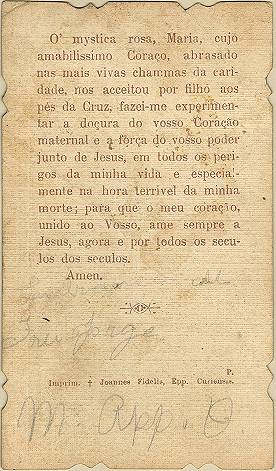 O' mystica rosa, Maria, cujo
amabilissimo Coraço, abrasado
nas mais vivas chammas da cari-
dade, nos acceitou por filho aos
pés da Cruz, fazei-me experimen-
tar a doçura do vosso Coração
maternal e a força do vosso poder
junto de Jesus, em todos os peri-
gos da minha vida e especial-
mente na hora terrivel da minha
morte; para que o meu coração,
unido ao Vosso, ame sempre a
Jesus, agora e por todos os secu-
los dos seculos.
Amen.
P.
Imprim. † Joannes Fidelis, Epp. Curiensas.
M. App. O